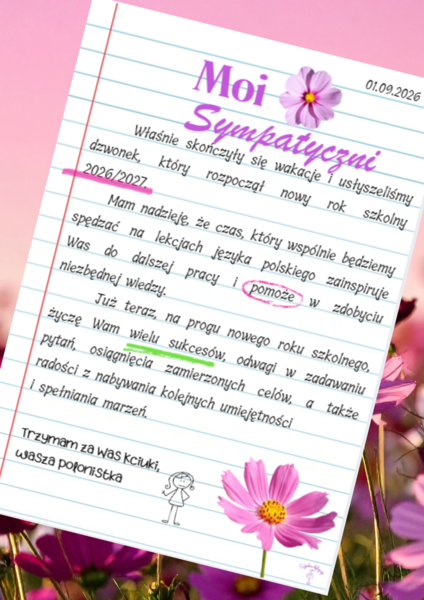 01.09.2026
Moi
Sympatyczni
Właśnie skończyły się wakacje i usłyszeliśmy
dzwonek, który rozpoczął nowy rok szkolny
2026/2027.
Mam nadzieję, że czas, który wspólnie będziemy
spędzać na lekcjach języka polskiego zainspiruje
Was do dalszej pracy i pomoże w zdobyciu
niezbędnej wiedzy.
Już teraz, na progu nowego roku szkolnego,
życzę Wam wielu sukcesów, odwagi w zadawaniu
pytań, osiągnięcia zamierzonych celów, a także
radości z nabywania kolejnych umiejętności
i spełniania marzeń.
Trzymam za Was kciuki,
wasza polonistka